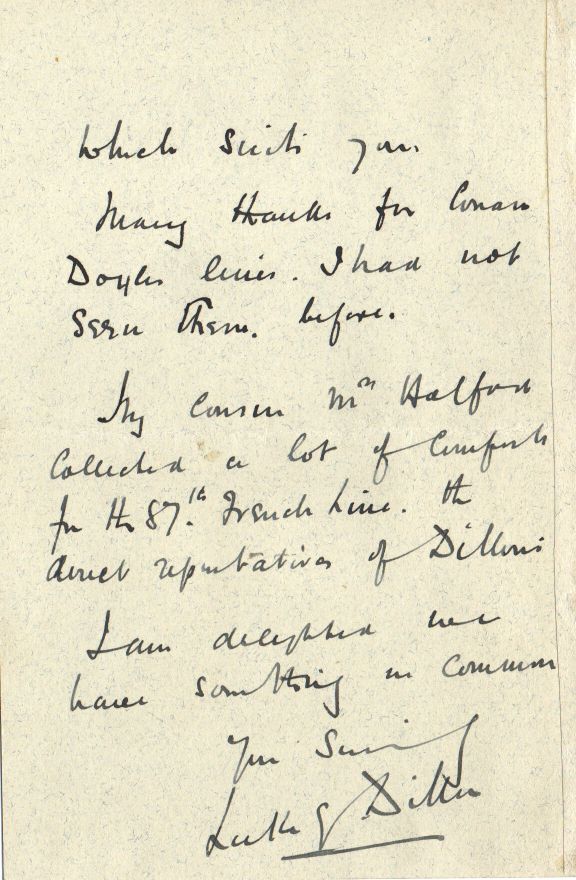 which suits you.
Many thanks for Conan
Doyles lines. I had not
seen them. before.
My cousin Mrs Halford
collected a lot of comforts
for the 87th. French Line. the
direct reprentatives of Dillons
I am delighted we
have something in common
Your Sincerely
Luke G Dillon